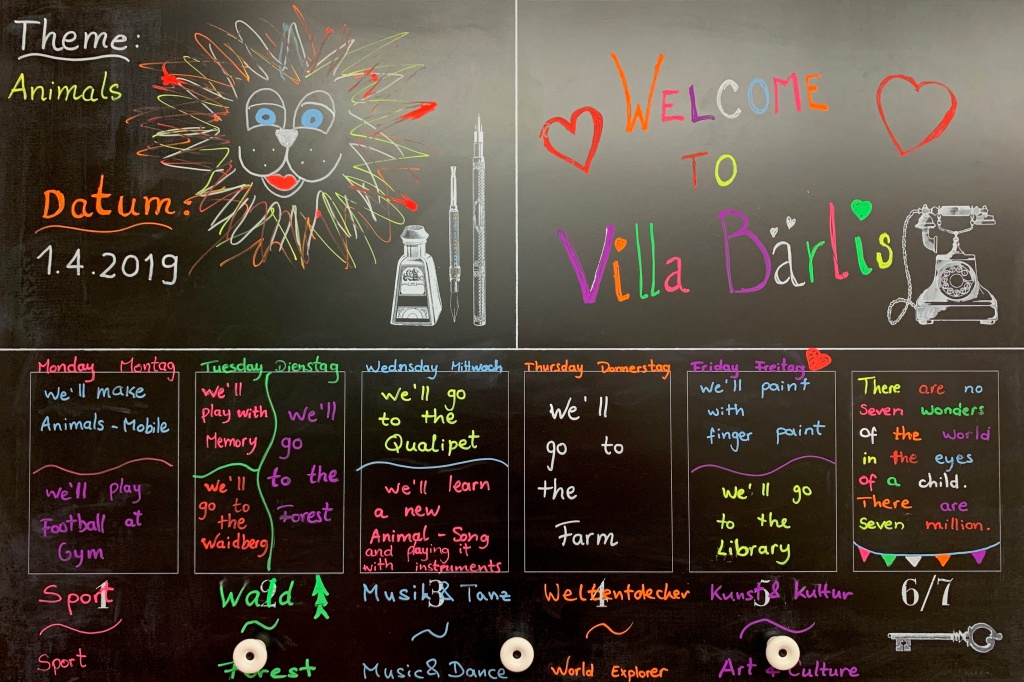 Theme:
Animals
Datum:
1.4.2019
WELCOME
TO
Villa Bärlis
Monday Montag
we'll make
Animals - Mobile
we'll play
Football at
Gym
1
Sport
Sport
Tuesday Dienstag
we'll
play with
Memory
we'll
go to
the
Waidberg
we'll
go
to the
Forest
2
Wald
Forest
Wednsday Mittwoch
we'll go
to the
Qualipet
we'll learn
a new
Animal - Song
and playing it
with instruments
3
Musik & Tanz
Music & Dance
Thursday Donnerstag
we'll
go to
the
Farm
4
Weltentdecker
World Explorer
Friday Freitag
we'll paint
with
finger paint
we'll go
to the
Library
5
Kunst & Kultur
Art & Culture
There are no
Seven wonders
of the world
in the eyes
of a child.
There are
Seven million.
6/7